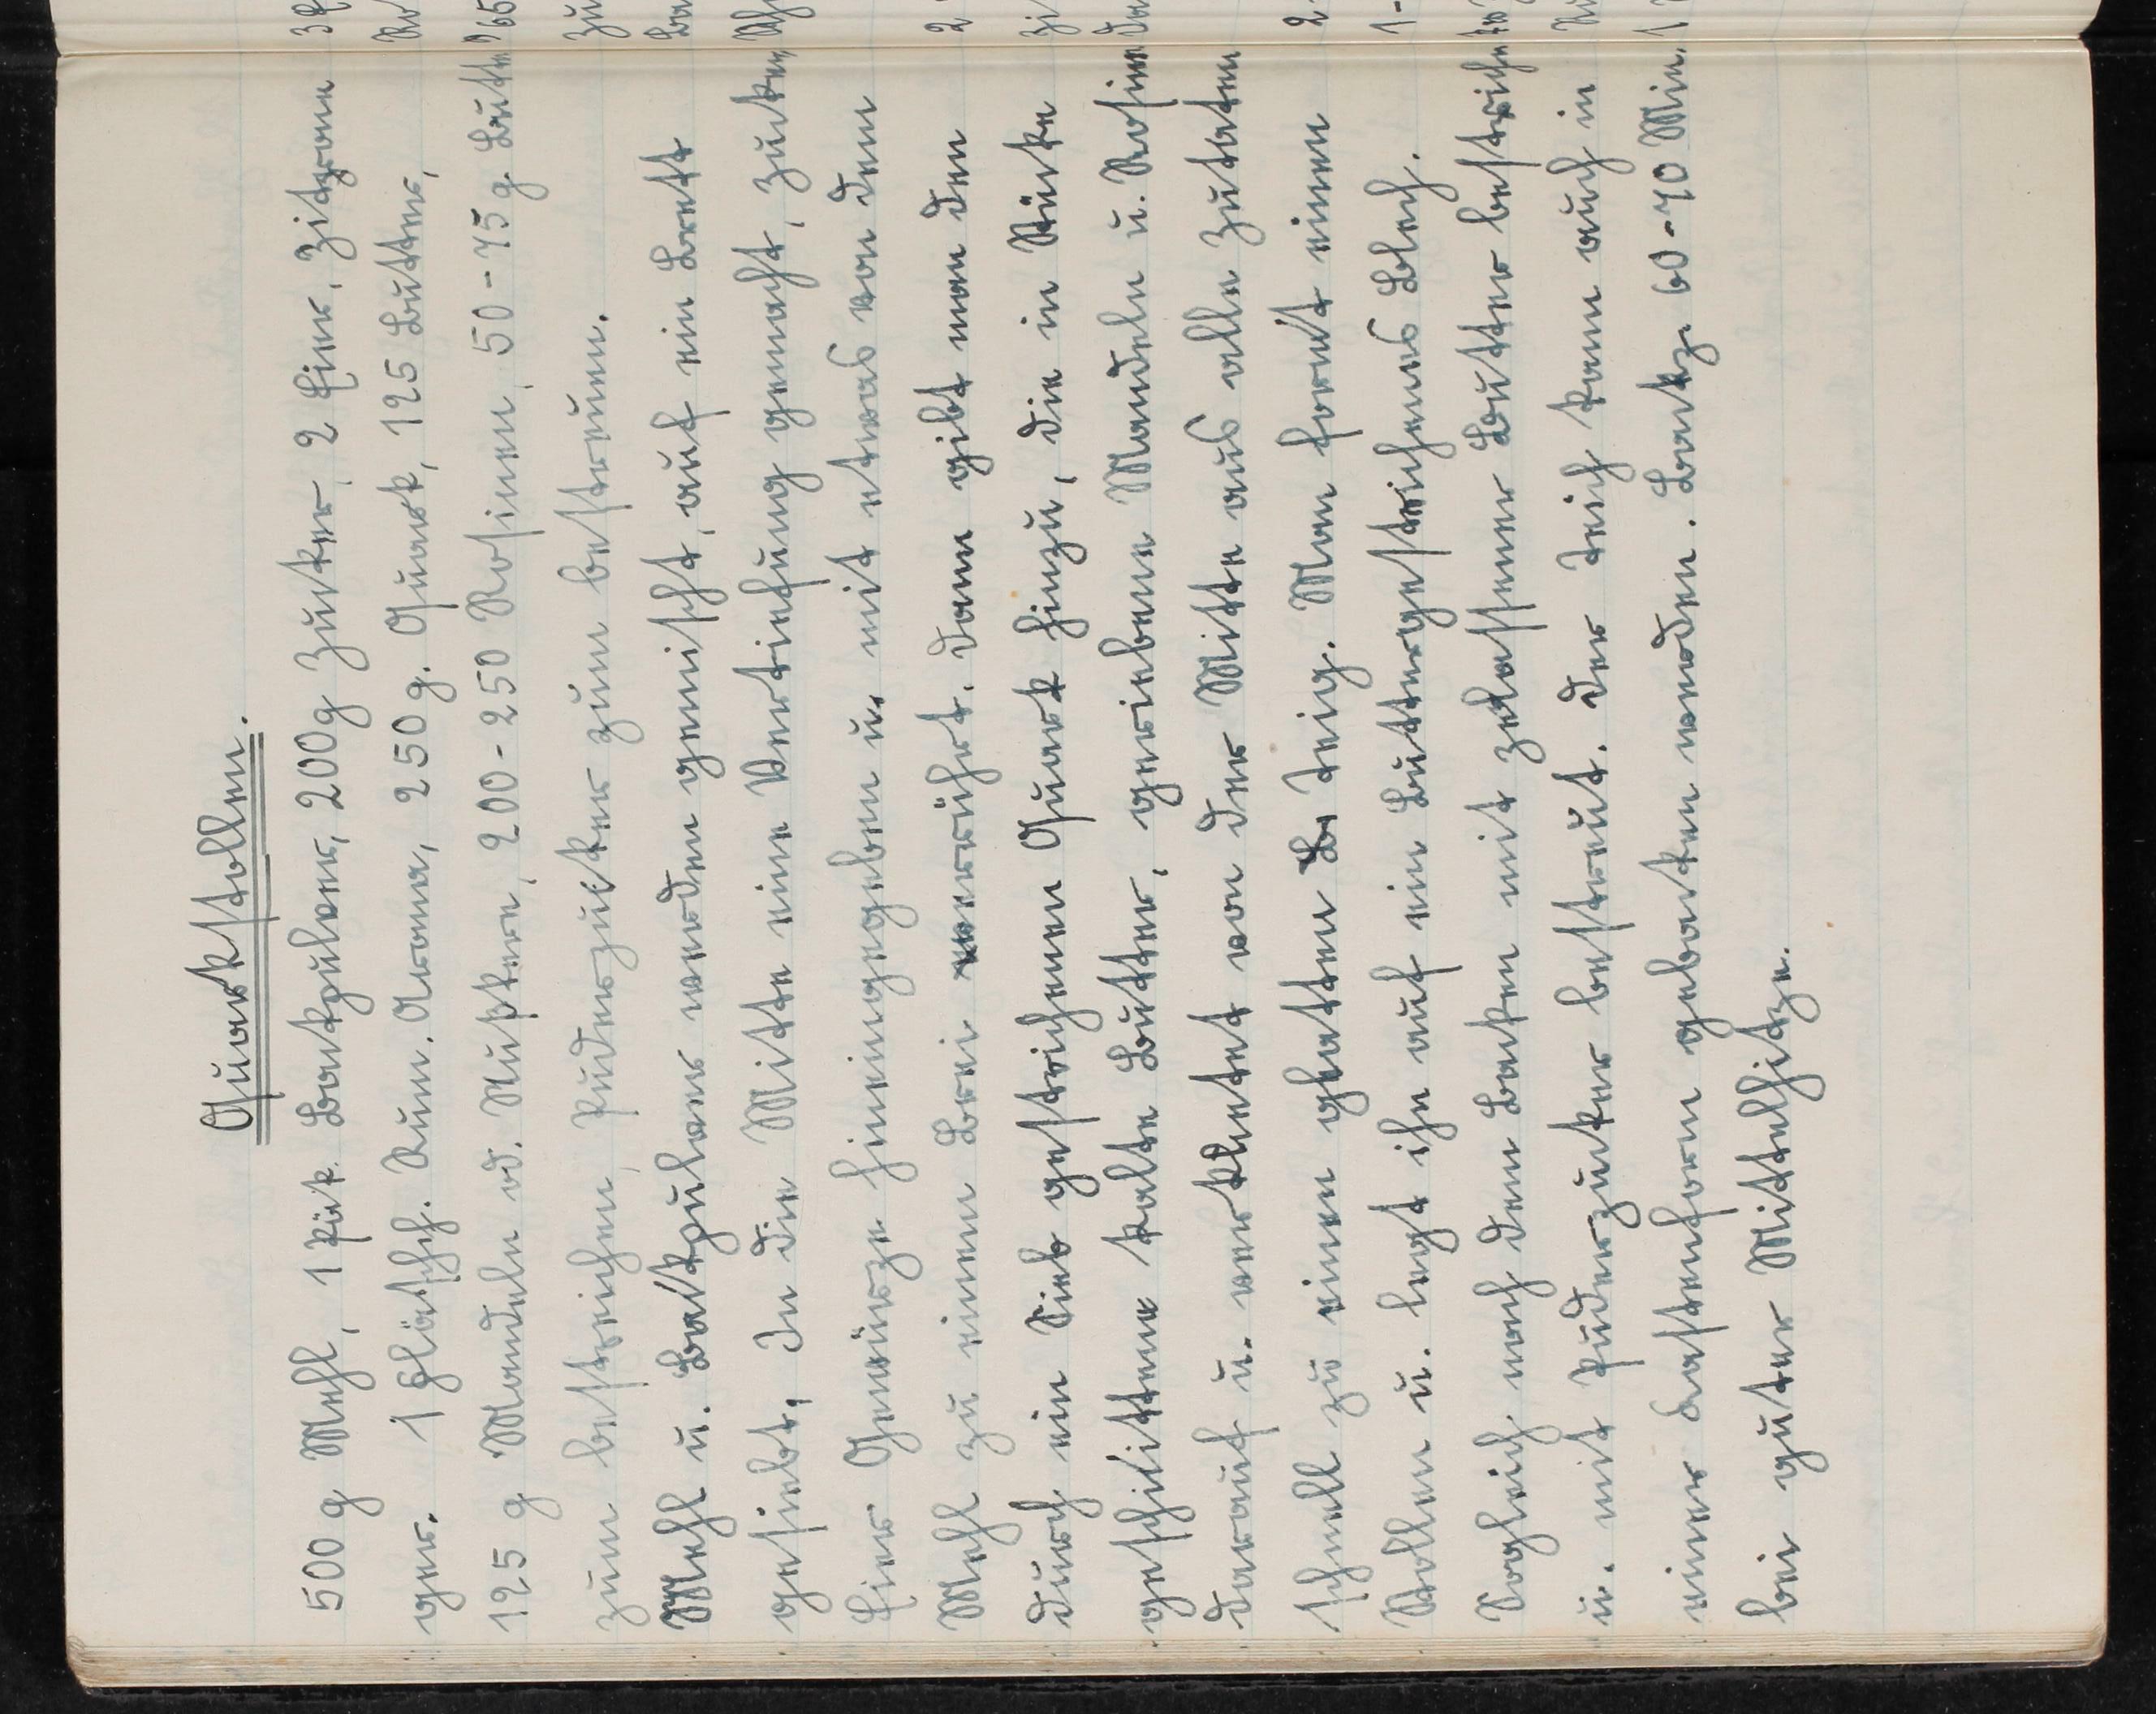 Quarkstollen.
500 g Mehl, 1 Päk. Backpulver, 200g Zucker, 2 Eier, Zitrone
ger. 1 Fläschch. Rum. Aroma, 250 g. Quark, 125 Butter,
125 g Mandeln od. Nußkern, 200-250 Rosinen, 50-75 g Butter
zum bestreichen, Puderzucker zum bestreuen.
Mehl u. Backpulver werden gemischt, auf ein Brett
gesiebt, In die Mitte eine Vertiefung gemacht, Zucker,
Eier Gewürze hineingegeben u. mit etwas von dem
Mehl zu einem Brei verrührt. Dann gibt man den
durch ein Sieb gestrichenen Quark hinzu, die in Stücke
geschnittene kalte Butter, geriebene Mandeln u. Rosinen
darauf u. verknetet von der Mitte aus alle Zutaten
schnell zu einem glatten Teig. Man formt einen
Stollen u. legt ihn auf ein Buttergestrichenes Blech.
Sogleich nach dem Backen mit zelassener Butter bestrichen
u. mit Puderzucker bestreut. Der Teig kann auch in
einer Kastenform gebacken werden. Backz. 60-70 Min.
bei guter Mittelhitze.